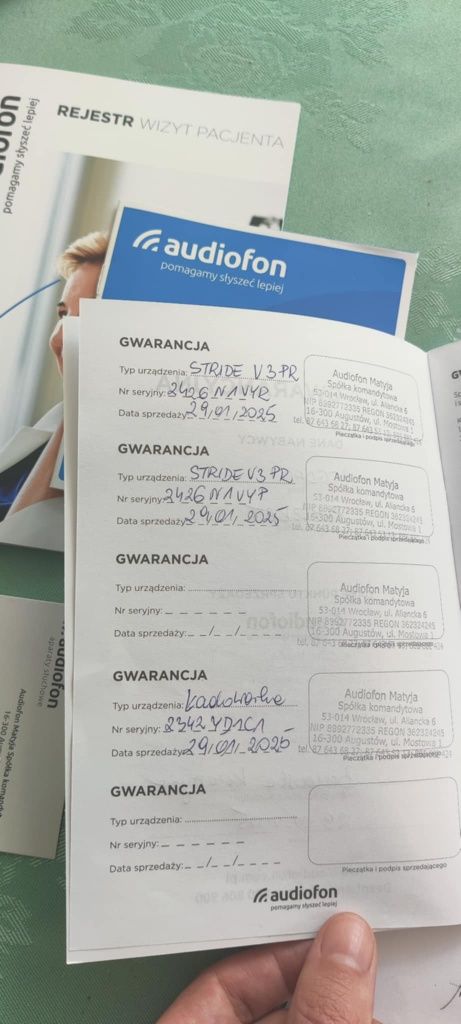 REJESTR WIZYT PACJENTA
pomagamy słyszeć lepiej
audiofon
pomagamy słyszeć lepiej
GWARANCJA
Typ urządzenia: STRIDE V3PR
Nr seryjny: 2426N1VYR
Data sprzedaży: 29/01/2025
Audiofon Matyja
Spółka komandytowa
53-014 Wrocław, ul. Aliancka 6
NIP 8992772335 REGON 362324245
16-300 Augustów, ul. Mostowa 1
Pieczątka i podpis sprzedającego
GWARANCJA
Typ urządzenia: STRIDE V3PR
Nr seryjny: 2426N1VYP
Data sprzedaży: 29/01/2025
Audiofon Matyja
Spółka komandytowa
53-014 Wrocław, ul. Aliancka 6
NIP 8992772335 REGON 362324245
16-300 Augustów, ul. Mostowa 1
Pieczątka i podpis sprzedającego
GWARANCJA
Typ urządzenia:
Nr seryjny:
Data sprzedaży:
Audiofon Matyja
Spółka komandytowa
53-014 Wrocław, ul. Aliancka 6
NIP 8992772335 REGON 362324245
16-300 Augustów, ul. Mostowa 1
Pieczątka i podpis sprzedającego
GWARANCJA
Typ urządzenia: Ładowarka
Nr seryjny: 2342YD1C1
Data sprzedaży: 29/01/2025
Audiofon Matyja
Spółka komandytowa
53-014 Wrocław, ul. Aliancka 6
NIP 8992772335 REGON 362324245
16-300 Augustów, ul. Mostowa 1
Pieczątka i podpis sprzedającego
GWARANCJA
Typ urządzenia:
Nr seryjny:
Data sprzedaży:
Pieczątka i podpis sprzedającego
audiofon
pomagamy słyszeć lepiej
audiofon
aparaty słuchowe
Audiofon Matyja Spółka
16-300